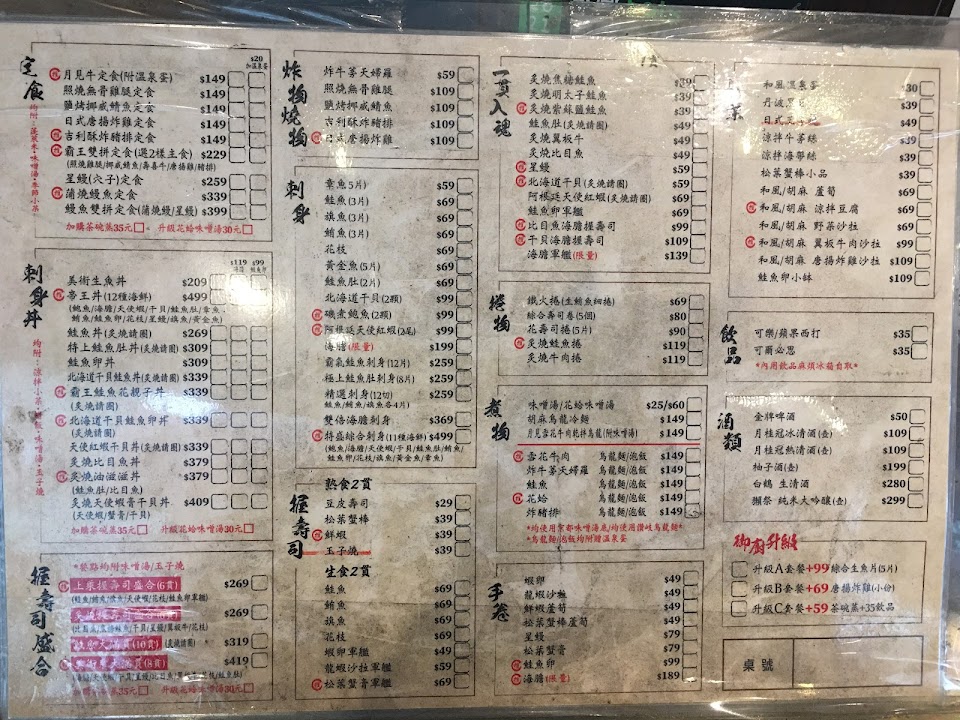 定食
均附：蔬菜米・味噌湯・季節小菜
$20
加溫泉蛋
月見牛定食(附溫泉蛋) $149
照燒無骨雞腿定食 $149
鹽烤挪威鯖魚定食 $149
日式唐揚炸雞定食 $149
吉利酥炸豬排定食 $149
霸王雙拼定食(選2樣主食) $229
(照燒雞腿/挪威鯖魚/壽喜牛/唐揚雞/豬排)
星鰻(穴子)定食 $259
蒲燒鰻魚定食 $339
鰻魚雙拼定食(蒲燒鰻/星鰻) $399
加購茶碗蒸35元 升級花蛤味噌湯30元
刺身丼
均附：涼拌小菜・味噌湯・玉子燒
$119 $99
美術生魚丼 $209
帝王丼(12種海鮮) $499
(鮑魚/海膽/天使蝦/干貝/鮭魚肚/章魚
鮭魚/鮭魚卵/花枝/星鰻/旗魚/黃金魚)
鮭魚丼(炙燒請圈) $269
特上鮭魚肚丼(炙燒請圈) $309
鮭魚卵丼 $309
北海道干貝鮭魚丼(炙燒請圈) $339
霸王鮭魚花親子丼 $339
(炙燒請圈)
北海道干貝鮭魚卵丼 $339
(炙燒請圈)
天使紅蝦干貝丼(炙燒請圈) $339
炙燒比目魚丼 $379
炙燒油滋滋丼 $379
(鮭魚肚/比目魚)
炙燒天使蝦蟹膏干貝丼 $409
(天使蝦/蟹膏/干貝)
加購茶碗蒸35元 升級花蛤味噌湯30元
握壽司盛合
*餐點均附味噌湯/玉子燒
上乘握壽司盛合(6貫) $269
$269
(10貫) (炙燒請圈) $319
(8貫) $419
加購茶碗蒸35元 升級花蛤味噌湯30元
炸物燒物
炸牛蒡天婦羅 $59
照燒無骨雞腿 $109
鹽烤挪威鯖魚 $109
吉利酥炸豬排 $109
日式唐揚炸雞 $109
刺身
章魚(5片) $59
鮭魚(3片) $69
旗魚(3片) $69
鮪魚(3片) $69
花枝 $69
黃金魚(5片) $69
鮭魚肚(2片) $69
北海道干貝(2顆) $99
磯煮鮑魚(2顆) $99
阿根廷天使紅蝦(2尾) $99
海膽(限量) $199
霸氣鮭魚刺身(12片) $259
極上鮭魚肚刺身(8片) $259
精選刺身(12切) $259
(鮭魚/鮪魚/旗魚各4片)
雙倍海膽刺身 $369
特盛綜合刺身(11種海鮮) $499
(鮑魚/海膽/天使蝦/干貝/鮭魚肚/鮪魚
鮭魚/鮭魚卵/花枝/旗魚/黃金魚/章魚)
握壽司
熟食2貫
豆皮壽司 $29
松葉蟹棒 $39
鮮蝦 $39
玉子燒 $39
生食2貫
鮭魚 $49
鮪魚 $49
旗魚 $49
花枝 $49
蝦卵軍艦 $49
龍蝦沙拉軍艦 $59
松葉蟹膏軍艦 $69
一貫入魂
炙燒焦糖鮭魚 $39
炙燒明太子鮭魚 $39
炙燒紫蘇鹽鮭魚 $39
鮭魚肚(炙燒請圈) $49
炙燒翼板牛 $49
炙燒比目魚 $49
星鰻 $59
北海道干貝(炙燒請圈) $59
阿根廷天使紅蝦(炙燒請圈) $69
鮭魚卵軍艦 $69
比目魚海膽握壽司 $99
干貝海膽握壽司 $109
海膽軍艦(限量) $139
捲物
鐵火捲(生鮪魚細捲) $69
綜合壽司卷(5個) $80
花壽司捲(5片) $90
炙燒鮭魚捲 $119
炙燒牛肉捲 $119
煮物
味噌湯/花蛤味噌湯 $25/$60
胡麻烏龍冷麵 $149
月見雪花牛肉乾拌烏龍(附味噌湯) $149
雪花牛肉 烏龍麵/泡飯 $149
炸牛蒡天婦羅 烏龍麵/泡飯 $149
鮭魚 烏龍麵/泡飯 $149
花蛤 烏龍麵/泡飯 $149
炸豬排 烏龍麵/泡飯 $149
*均使用京都味噌湯底/均使用讚岐烏龍麵*
*烏龍麵/泡飯均附贈溫泉蛋*
手卷
蝦卵 $49
龍蝦沙拉 $49
鮮蝦蘆筍 $49
松葉蟹棒蘆筍 $49
星鰻 $79
松葉蟹膏 $79
鮭魚卵 $99
海膽(限量) $189
菜
和風溫泉蛋 $30
$39
$49
涼拌牛蒡絲 $39
涼拌海帶絲 $39
松葉蟹棒小品 $39
和風/胡麻 蘆筍 $69
和風/胡麻 涼拌豆腐 $69
和風/胡麻 野菜沙拉 $69
和風/胡麻 翼板牛肉沙拉 $99
和風/胡麻 唐揚炸雞沙拉 $109
鮭魚卵小缽 $109
飲品
可樂/蘋果西打 $35
可爾必思 $35
*內用飲品麻煩冰箱自取*
酒類
金牌啤酒 $50
月桂冠冰清酒(壺) $109
月桂冠熱清酒(壺) $109
柚子酒(壺) $199
白鶴 生清酒 $280
獺祭 純米大吟釀(壺) $299
御廚升級
升級A套餐+99綜合生魚片(5片)
升級B套餐+69唐揚炸雞(小份)
升級C套餐+59茶碗蒸+35飲品
桌號